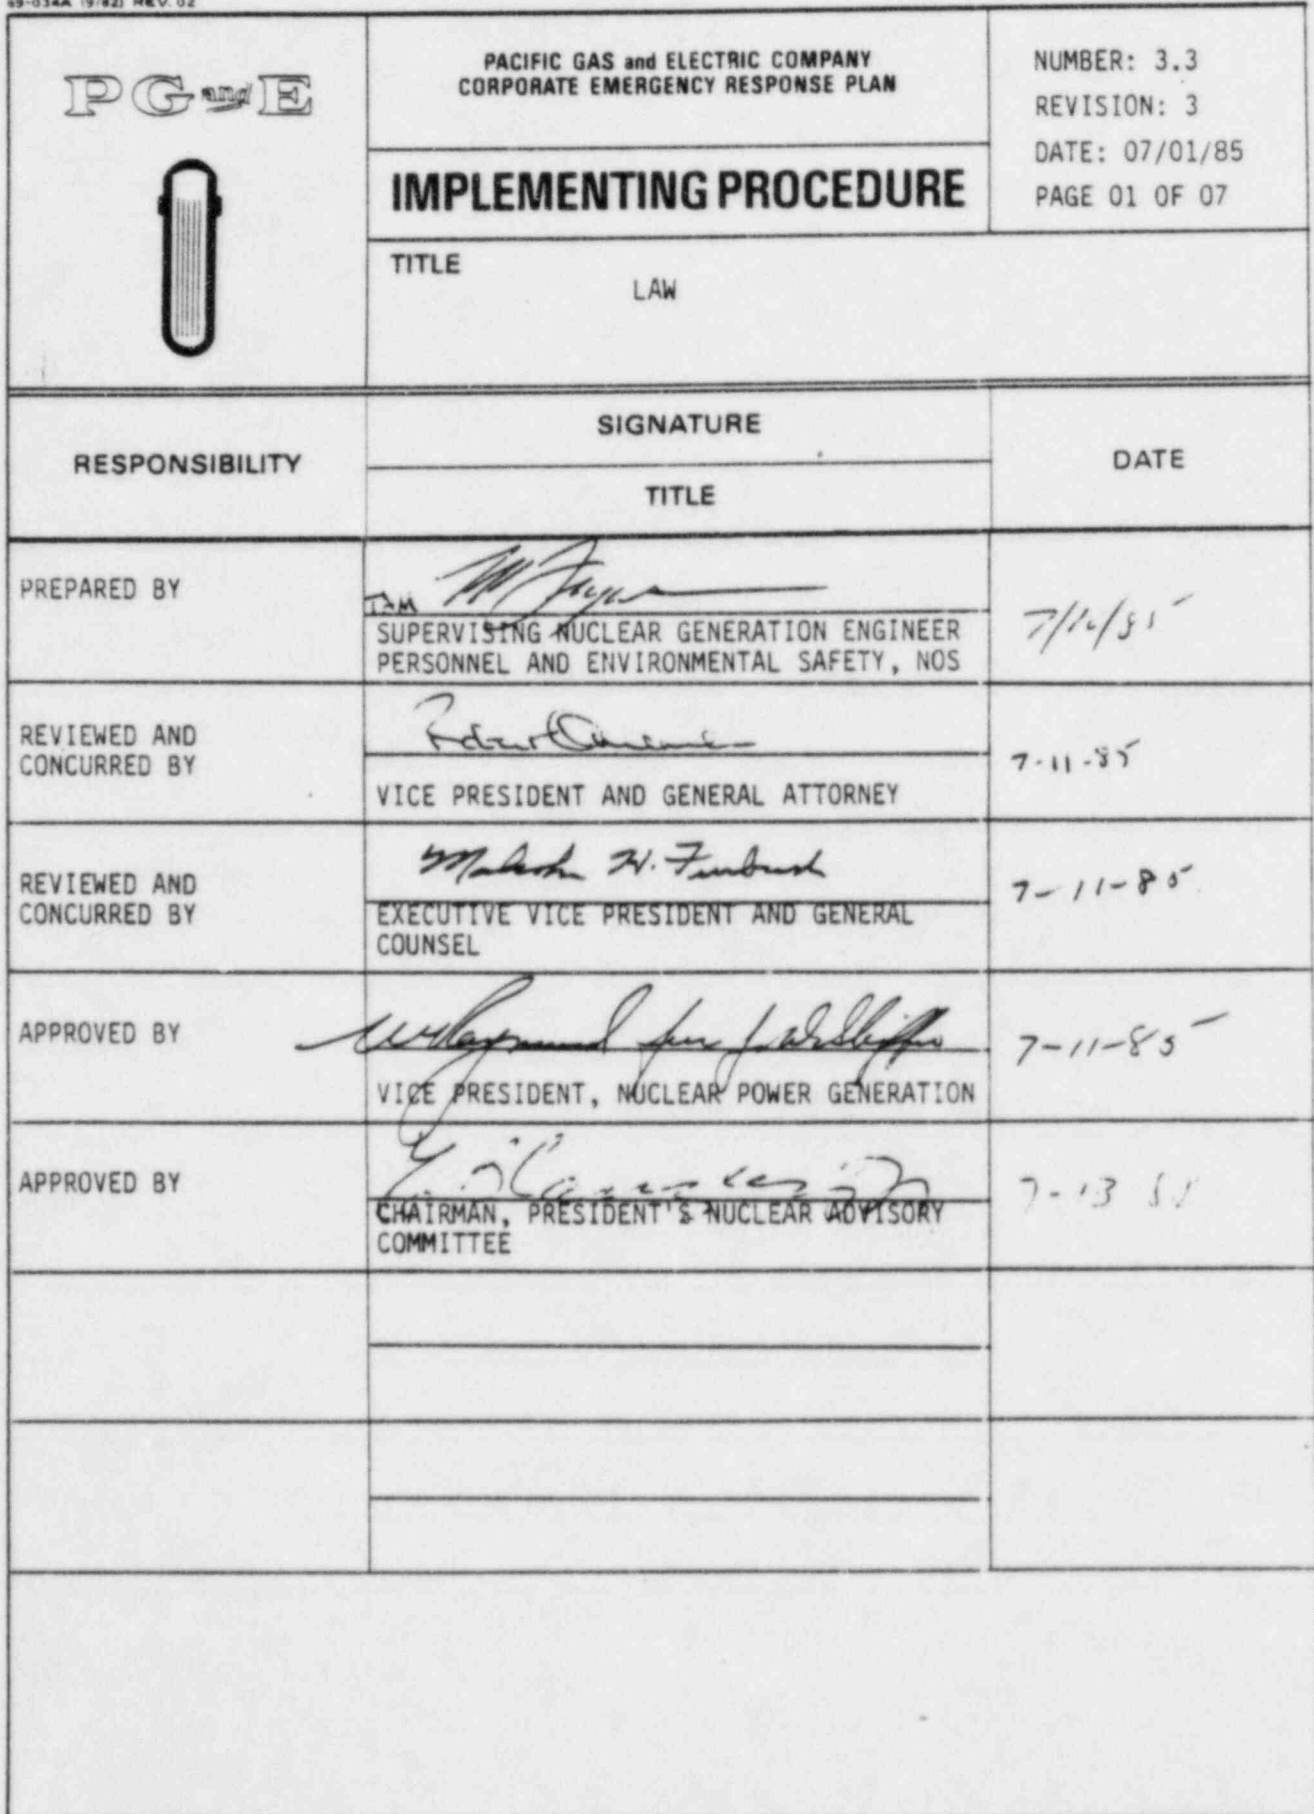 69-034AA (9/82) REV. 02
PG and E
PACIFIC GAS and ELECTRIC COMPANY
CORPORATE EMERGENCY RESPONSE PLAN
IMPLEMENTING PROCEDURE
NUMBER: 3.3
REVISION: 3
DATE: 07/01/85
PAGE 01 OF 07
TITLE
LAW
RESPONSIBILITY
SIGNATURE
TITLE
DATE
PREPARED BY
SUPERVISING NUCLEAR GENERATION ENGINEER
PERSONNEL AND ENVIRONMENTAL SAFETY, NOS
REVIEWED AND
CONCURRED BY
VICE PRESIDENT AND GENERAL ATTORNEY
7-11-85
REVIEWED AND
CONCURRED BY
Malcolm H. Furbush
EXECUTIVE VICE PRESIDENT AND GENERAL
COUNSEL
7-11-85
APPROVED BY
VICE PRESIDENT, NUCLEAR POWER GENERATION
7-11-85
APPROVED BY
CHAIRMAN, PRESIDENT'S NUCLEAR ADVISORY
COMMITTEE
7-13 85